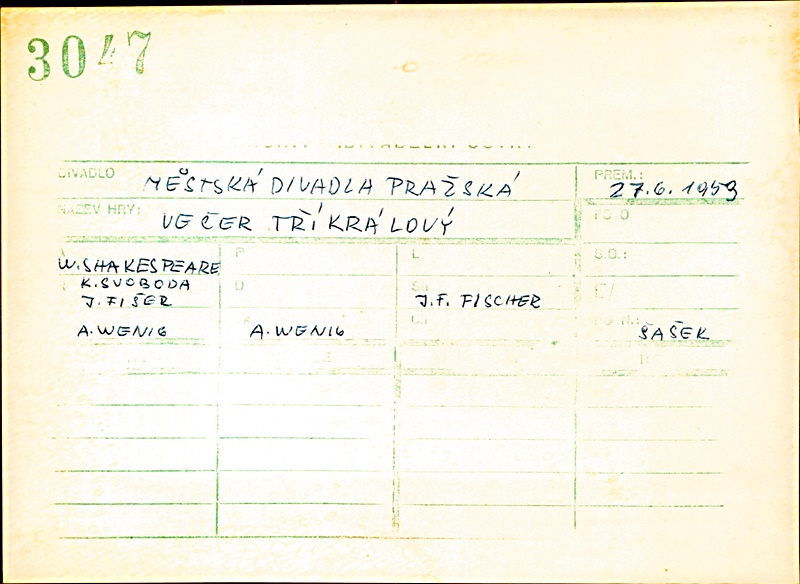 3047
DIVADLO MĚSTSKÁ DIVADLA PRAŽSKÁ PREM.: 27.6.1953
NÁZEV HRY: VEČER TŘÍKRÁLOVÝ
W. SHAKESPEARE P L S.O.:
K. SVOBODA D
J. FIŠER J.F. FISCHER
A. WENIG A. WENIG ŠAŠEK